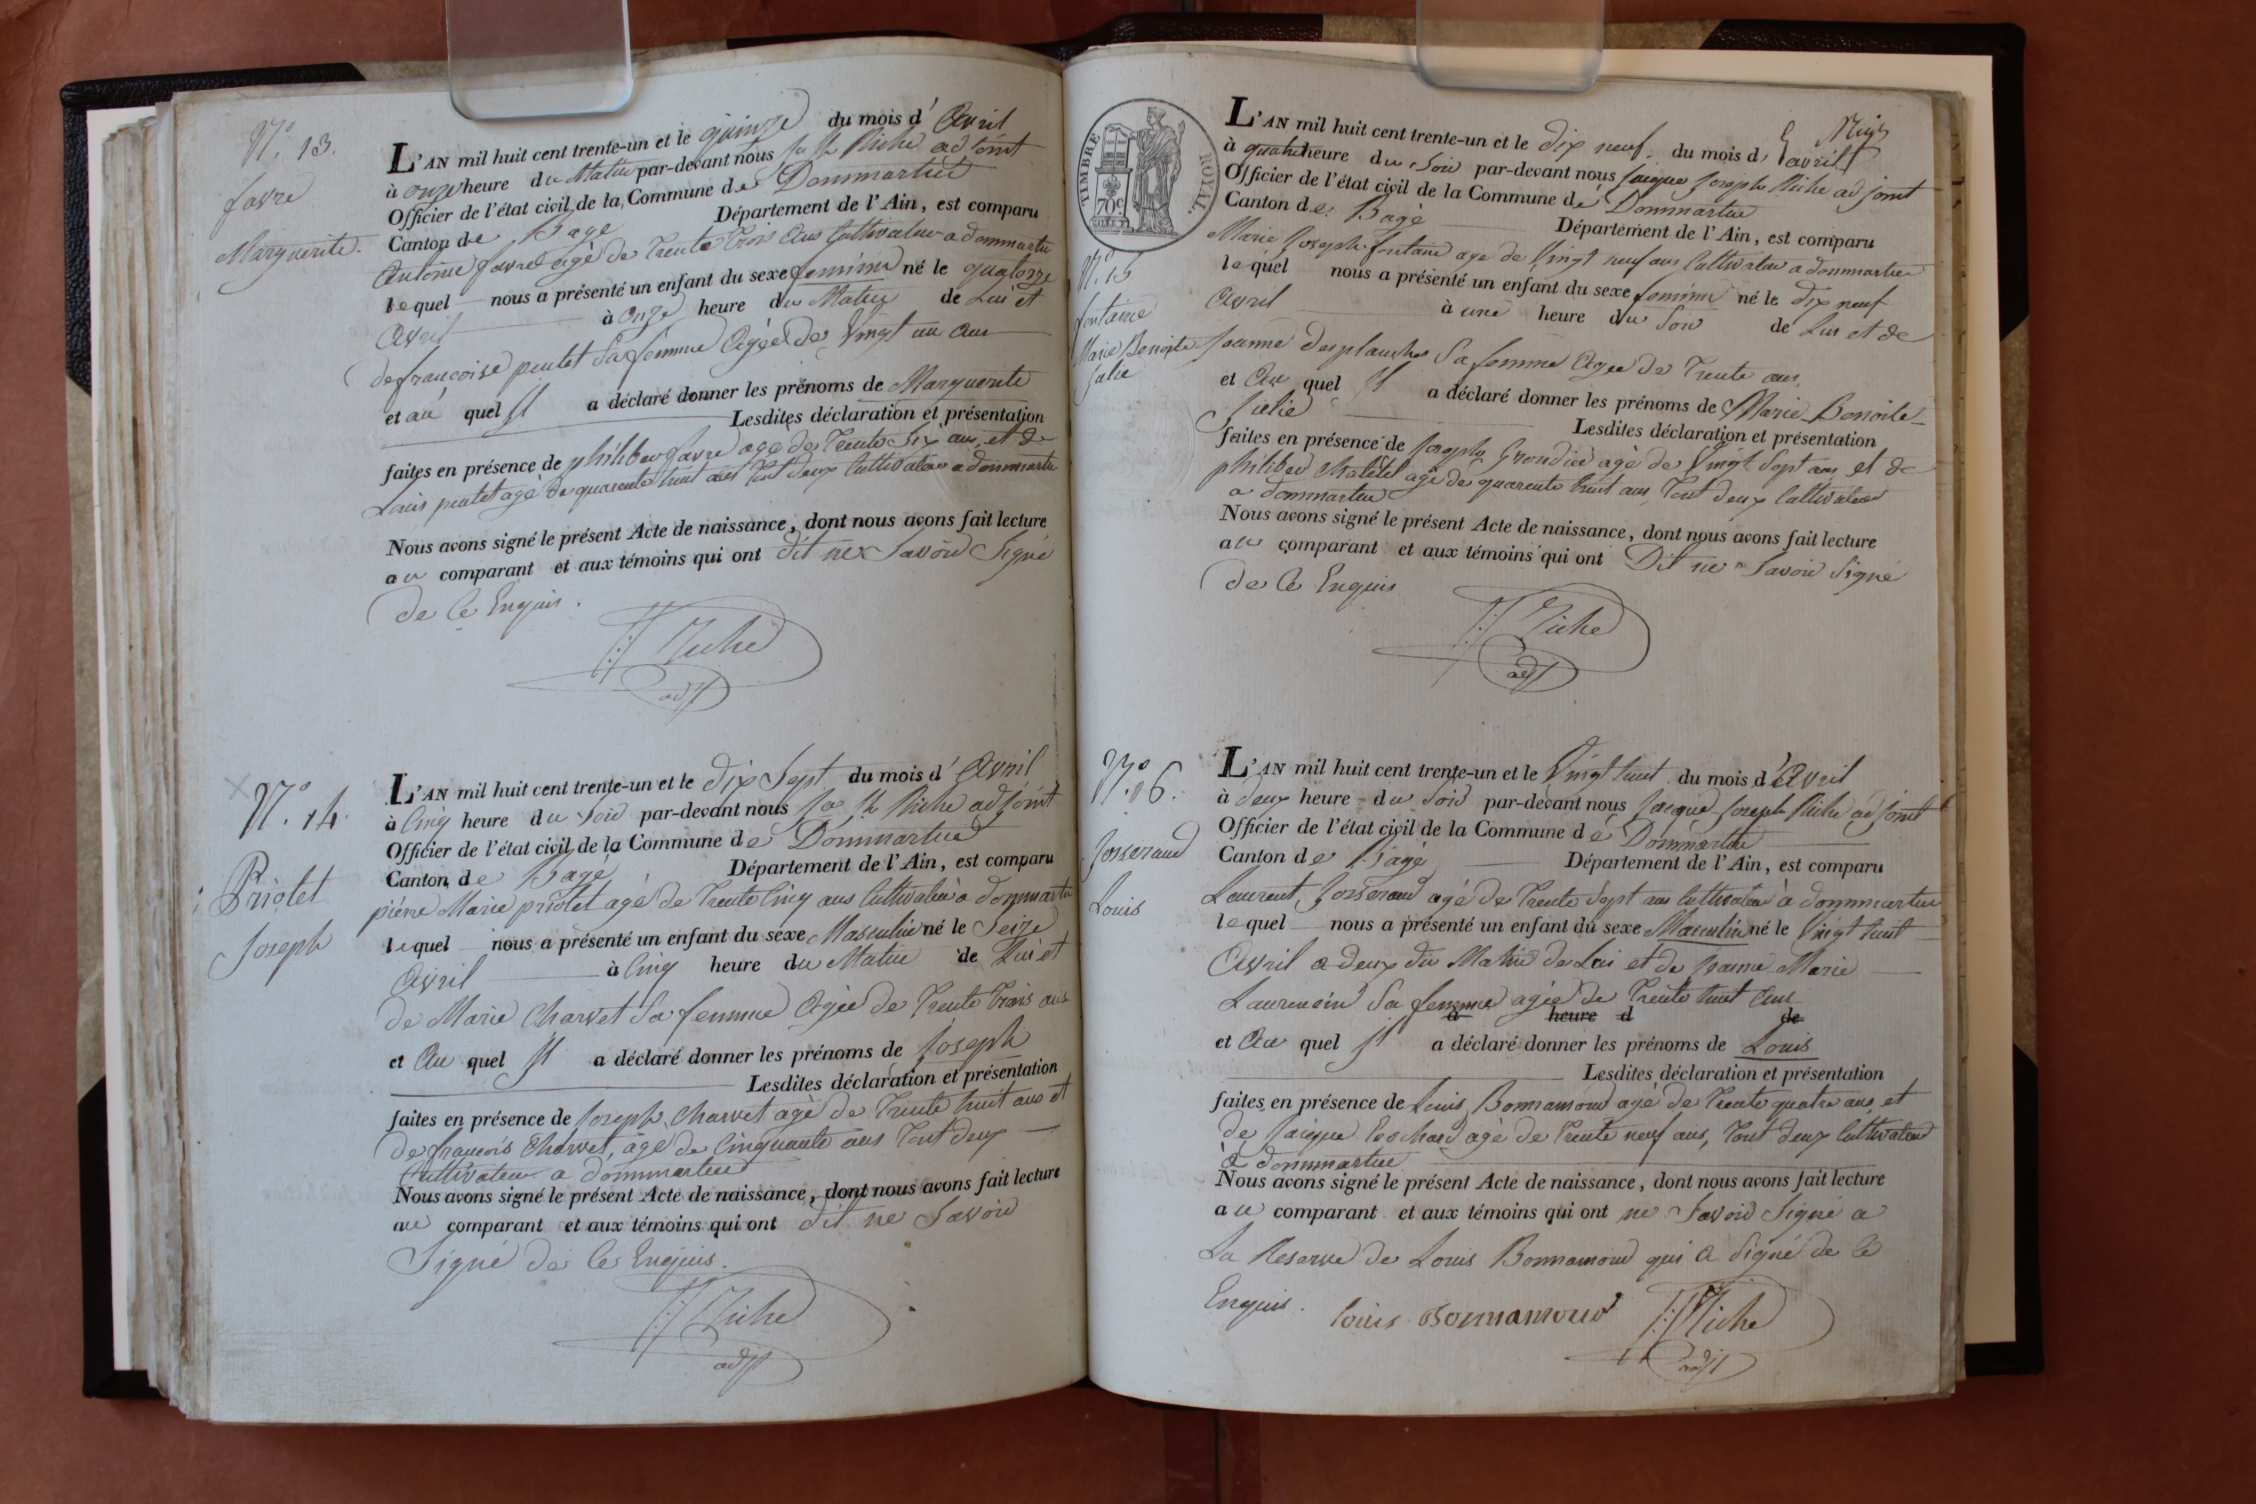 N.° 13.
favre
Marguerite.
L'AN mil huit cent trente-un et le quinze du mois d' Avril
à onze heure du Matin par-devant nous Jq Jh Riche adjoint
Officier de l'état civil de la Commune de Dommartin
Canton de Bagé Département de l'Ain, est comparu
Antoine favre agé de trente trois ans Cultivateur a dommartin
lequel nous a présenté un enfant du sexe feminin né le quatorze
Avril à onze heure du Matin de Lui et
de francoise peutet Sa femme Agée de Vingt un ans
et au quel Il a déclaré donner les prénoms de Marguerite
Lesdites déclaration et présentation
faites en présence de philiber favre agé de trente Six ans, et de
Louis peutet agé de quarente huit ans tout deux Cultivateur a dommartin
Nous avons signé le présent Acte de naissance, dont nous avons fait lecture
au comparant et aux témoins qui ont dit ne Savoir Signé
de Ce Enquis.
Riche
adjt
N.° 14.
Priolet
Joseph
L'AN mil huit cent trente-un et le dix Sept du mois d' Avril
à Cinq heure du Soir par-devant nous Jq Jh Riche adjoint
Officier de l'état civil de la Commune de Dommartin
Canton de Bagé Département de l'Ain, est comparu
piérre Marie priolet agé de trente Cinq ans Cultivateur a dommartin
lequel nous a présenté un enfant du sexe Masculin né le Seize
Avril à Cinq heure du Matin de Lui et
de Marie Charvet Sa femme Agée de trente trois ans
et Au quel Il a déclaré donner les prénoms de Joseph
Lesdites déclaration et présentation
faites en présence de Joseph Charvet agé de trente huit ans et
de francois Charvet, agé de Cinquante ans tout deux
Cultivateur a dommartin
Nous avons signé le présent Acte de naissance, dont nous avons fait lecture
au comparant et aux témoins qui ont dit ne Savoir
Signé de Ce Enquis.
Riche
adjt
TIMBRE ROYAL.
70c
N.° 15
fontaine
Marie Benoite
Julie
L'AN mil huit cent trente-un et le dix neuf du mois d' avril
à quatre heure du Soir par-devant nous Jacque Joseph Riche adjoint
Officier de l'état civil de la Commune de Dommartin
Canton de Bagé Département de l'Ain, est comparu
Marie Joseph fontaine agé de Vingt neuf ans Cultivateur a dommartin
lequel nous a présenté un enfant du sexe feminin né le dix neuf
Avril à une heure du Soir de Lui et de
Jeanne desplanches Sa femme Agée de trente ans,
et Au quel Il a déclaré donner les prénoms de Marie Benoite
Julie Lesdites déclaration et présentation
faites en présence de Joseph Grondier agé de Vingt Sept ans et de
philiber Chatelet agé de quarente huit ans tout deux Cultivateur
a dommartin
Nous avons signé le présent Acte de naissance, dont nous avons fait lecture
au comparant et aux témoins qui ont Dit ne Savoir Signé
de Ce Enquis
Riche
adjt
N.° 16.
Josserand
Louis
L'AN mil huit cent trente-un et le Vingt huit du mois d' Avril
à deux heure du Soir par-devant nous Jacque Joseph Riche adjoint
Officier de l'état civil de la Commune de Dommartin
Canton de Bagé Département de l'Ain, est comparu
Laurent Josserand agé de trente Sept ans Cultivateur à dommartin
lequel nous a présenté un enfant du sexe Masculin né le Vingt huit
Avril a deux du Matin de Lui et de Jeanne Marie
Laurencin Sa femme agée de trente huit ans
à heure d de
et Au quel Il a déclaré donner les prénoms de Louis
Lesdites déclaration et présentation
faites en présence de Louis Bonnamour agé de trente quatre ans et
de Jacque Bochard agé de trente neuf ans, tout deux Cultivateur
à dommartin
Nous avons signé le présent Acte de naissance, dont nous avons fait lecture
au comparant et aux témoins qui ont ne Savoir Signé a
La Reserve de Louis Bonnamour qui a Signé de Ce
Enquis. louis Bonnamour Riche
adjt